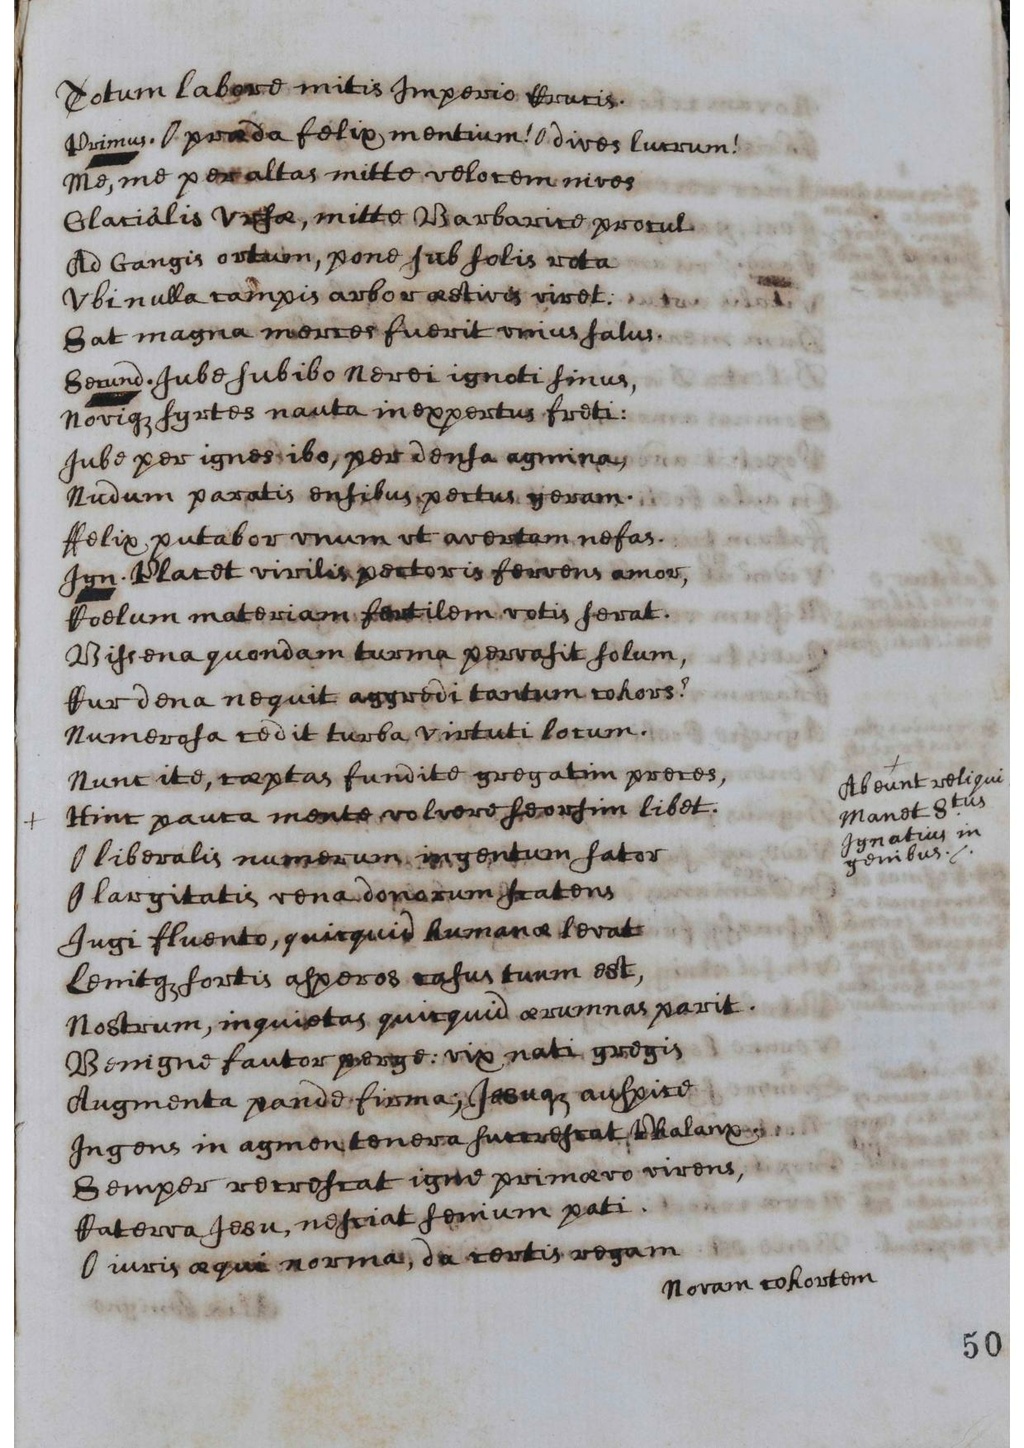 Totum labore mitis Imperio Crucis.
Primus. O præda felix mentium! O dives lucrum!
Me, me per altas mitte velocem nives
Glacialis Vrsæ, mitte Barbarice procul
Ad Gangis ortum, pone sub solis rota
Vbi nulla campis arbor æstivis viret.
Sat magna merces fuerit vnius salus.
Secund. Jube subibo Nerei ignoti sinus,
Noviq3 syrtes nauta inexpertus freti:
Jube per ignes ibo, per densa agmina,
Nudum paratis ensibus pectus geram.
Felix putabor vnum vt avertam nefas.
Ign. Placet virilis pectoris fervens amor,
Coelum materiam fertilem votis serat.
Bissena quondam turma pervasit solum,
Cur dena nequit aggredi tantum cohors?
Numerosa cedit turba virtuti locum.
Nunc ite, cæptas fundite gregatim preces,
+ Hinc pauca mente volvere seorsim libet.
+
Abeunt reliqui
Manet Stus
Ignatius in
genibus.
O liberalis numerum ingentum sator
O largitatis vena donorum scatens
Jugi fluento, quicquid humanæ levat
Lenitq3 sortis asperos casus tuum est,
Nostrum, inquietas quicquid ærumnas parit.
Benigne fautor perge: vix nati gregis
Augmenta pande firma, Jesuq3 auspice
Ingens in agmen tenera succrescat Phalanx.
Semper recrescat igne primævo virens,
Caterva Jesu, nesciat senium pati.
O iuris æqui norma, da certis regam
Novam cohortem
50